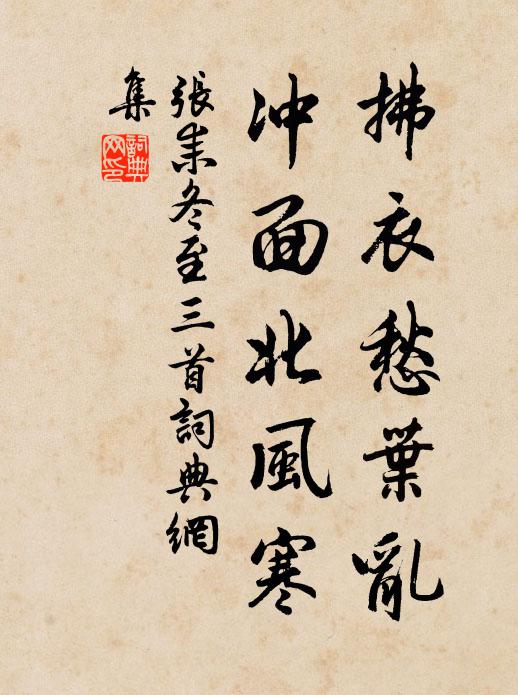 拂衣愁葉亂
冲面北風寒
張耒冬至三首詞典網
集
詞典
網印